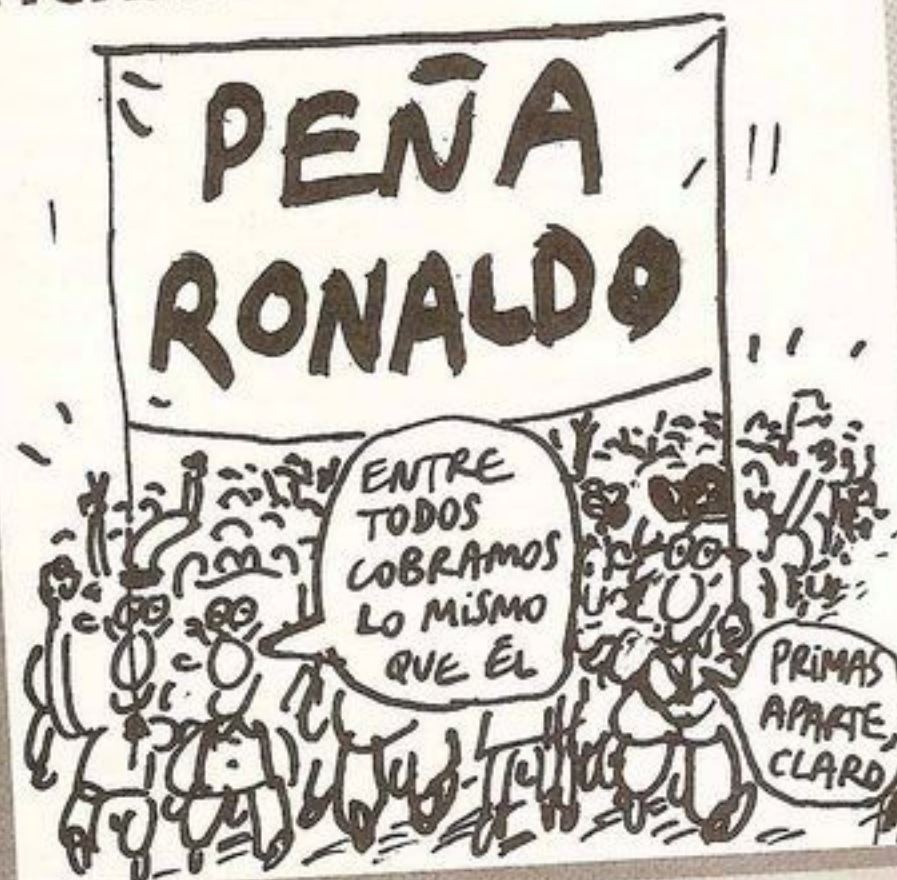 PEÑA
RONALDO
ENTRE
TODOS
COBRAMOS
LO MISMO
QUE ÉL
PRIMAS
APARTE,
CLARO